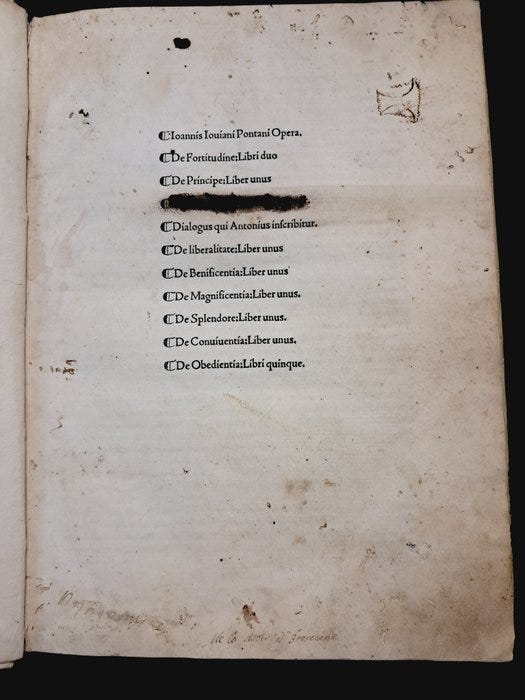 ❡Ioannis Iouiani Pontani Opera.
❡De Fortitudine:Libri duo
❡De Principe:Liber unus
❡Dialogus qui Antonius inſcribitur.
❡De liberalitate:Liber unus
❡De Benificentia:Liber unus
❡De Magnificentia:Liber unus.
❡De Splendore:Liber unus.
❡De Conuiuentia:Liber unus.
❡De Obedientia:Libri quinque.